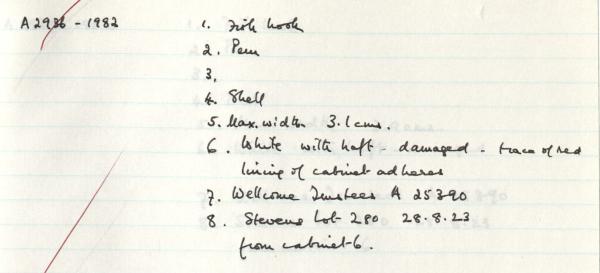 A2936 - 1982
1. Fish hook
2. Peru
3.
4. Shell
5. Max. width 3.1 cms.
6. White with haft damaged - trace of red
lining of cabinet adheres
7. Wellcome Trustees A 25390
8. Stevens Lot 280 28.8.23
from cabinet 6.